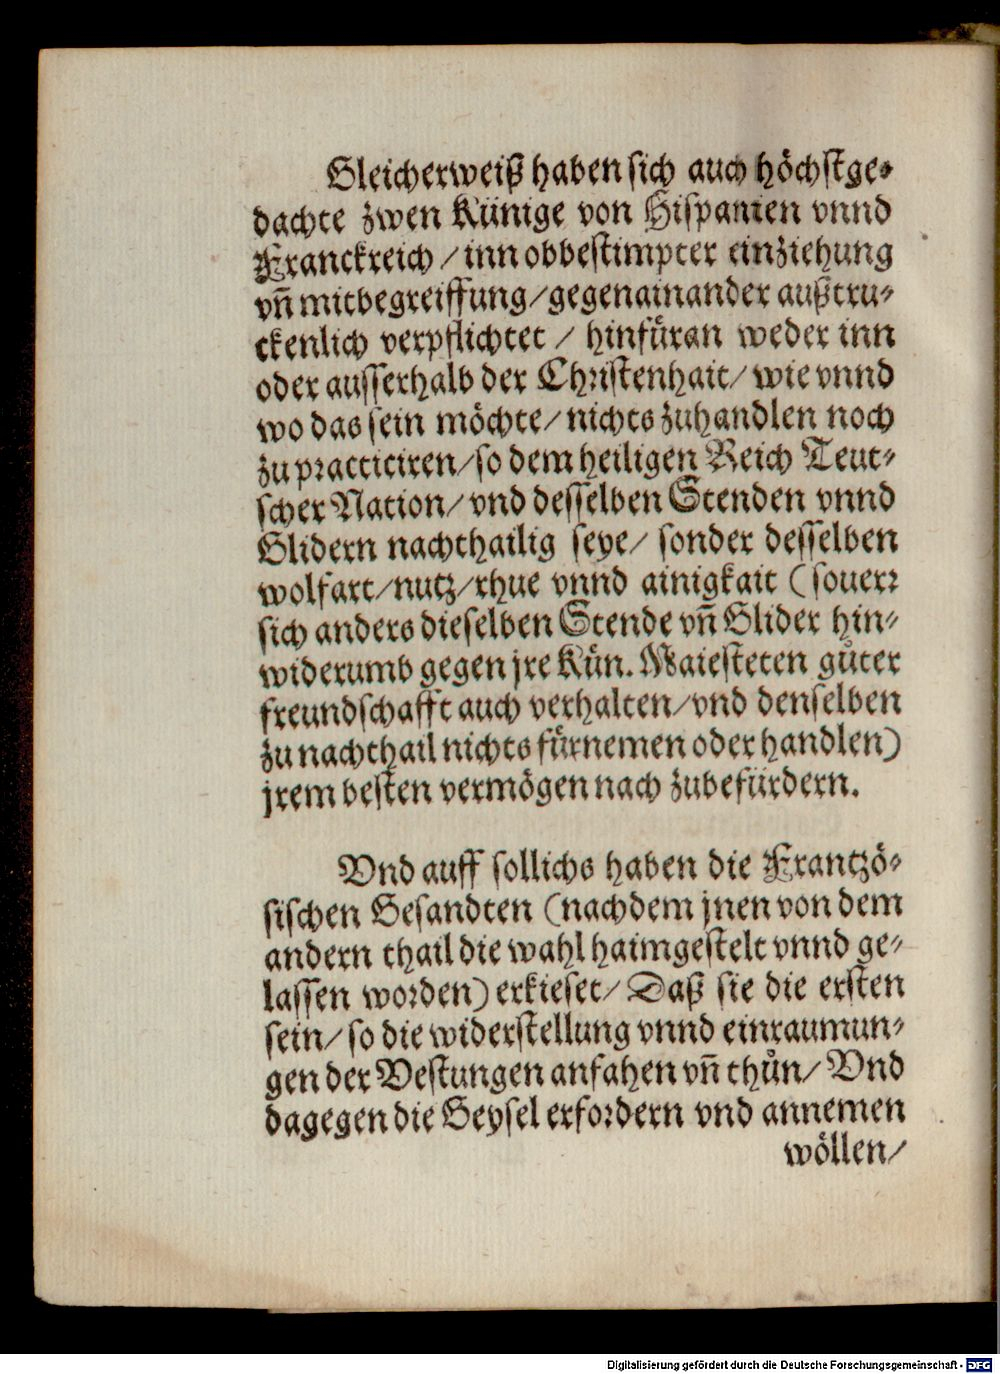 Gleicherweiß haben sich auch höchstge⸗
dachte zwen Künige von Hispanien vnnd
Franckreich / inn obbestimpter einziehung
vñ mitbegreiffung / gegenainander außtru⸗
ckenlich verpflichtet / hinfüran weder inn
oder ausserhalb der Christenhait / wie vnnd
wo das sein möchte / nichts zuhandlen noch
zu practiciren / so dem heiligen Reich Teut⸗
scher Nation / vnd desselben Stenden vnnd
Glidern nachthailig seye / sonder desselben
wolfart / nutz / rhue vnnd ainigkait (souerr
sich anders dieselben Stende vñ Glider hin⸗
widerumb gegen jre Kün. Maiesteten gůter
freundschafft auch verhalten / vnd denselben
zu nachthail nichts fürnemen oder handlen)
jrem besten vermögen nach zubefürdern.
Vnd auff sollichs haben die Frantzö⸗
sischen Gesandten (nachdem jnen von dem
andern thail die wahl haimgestelt vnnd ge⸗
lassen worden) erkieset / Daß sie die ersten
sein / so die widerstellung vnnd einraumun⸗
gen der Vestungen anfahen vñ thůn / Vnd
dagegen die Geysel erfordern vnd annemen
wöllen /
Digitalisierung gefördert durch die Deutsche Forschungsgemeinschaft - DFG